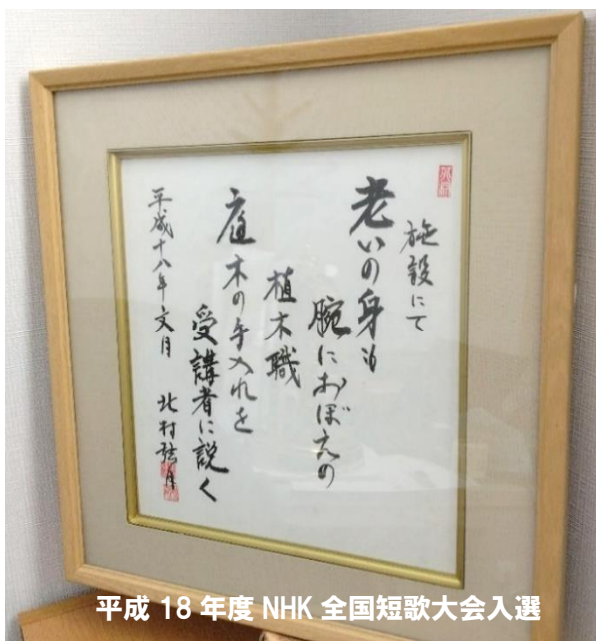 施設にて
老いの身も
腕におぼえの
植木職
庭木の手入れを
受講者に説く
平成十八年文月 北村
平成 18 年度 NHK 全国短歌大会入選